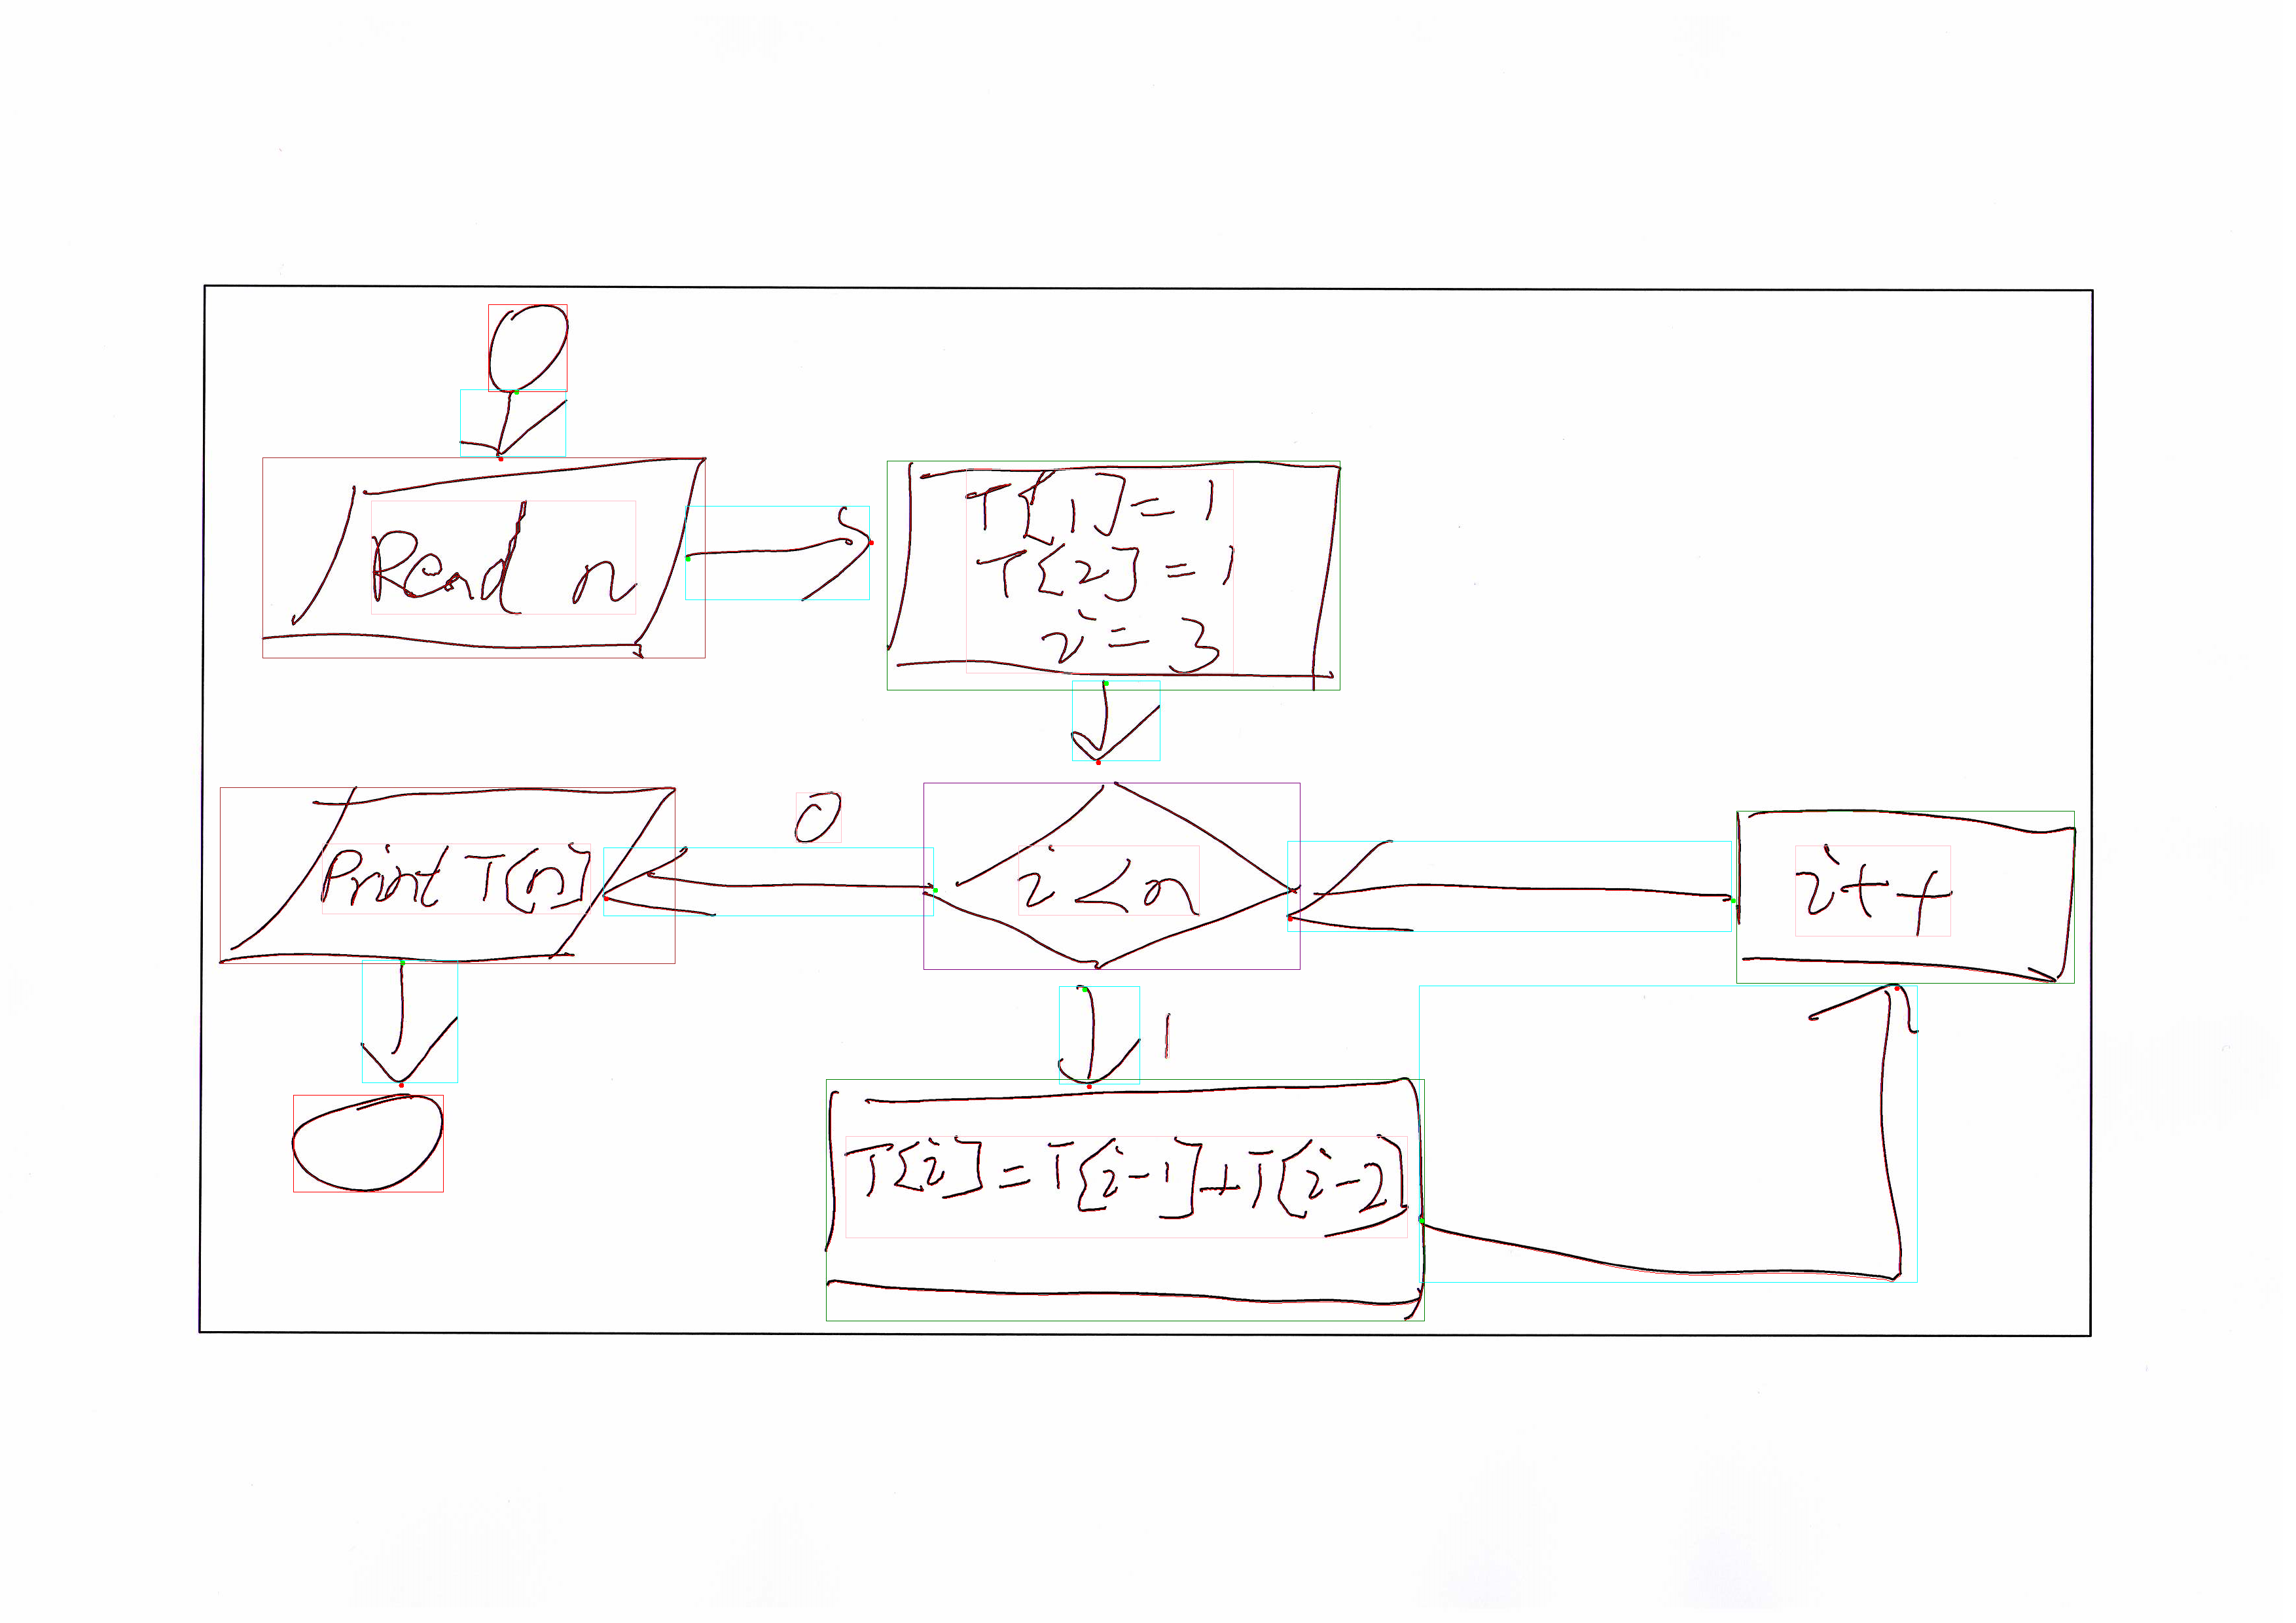 Read n
T[1] = 1
T[2] = 1
i = 3
0
Print T[n]
i < n
i++
1
T[i] = T[i-1] + T[i-2]